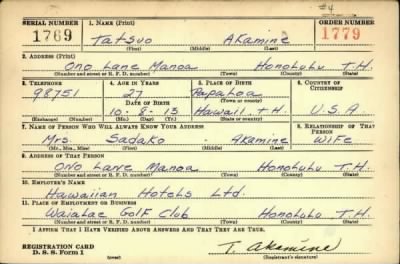 #4
SERIAL NUMBER 1. NAME (Print) ORDER NUMBER
1769 Tatsuo Akamine 1779
(First) (Middle) (Last)
2. ADDRESS (Print)
Ono Lane Manoa Honolulu T.H.
(Number and street or R. F. D. number) (Town) (County) (State)
3. TELEPHONE 4. AGE IN YEARS 5. PLACE OF BIRTH 6. COUNTRY OF CITIZENSHIP
98751 27 Papaloa
DATE OF BIRTH (Town or county)
10-8-13 Hawaii T.H. U.S.A.
(Exchange) (Number) (Mo.) (Day) (Yr.) (State or country)
7. NAME OF PERSON WHO WILL ALWAYS KNOW YOUR ADDRESS 8. RELATIONSHIP OF THAT PERSON
Mrs. Sadako Akamine Wife
(Mr., Mrs., Miss) (First) (Middle) (Last)
9. ADDRESS OF THAT PERSON
Ono Lane Manoa Honolulu T.H.
(Number and street or R. F. D. number) (Town) (County) (State)
10. EMPLOYER'S NAME
Hawaiian Hotels Ltd.
11. PLACE OF EMPLOYMENT OR BUSINESS
Waialae Golf Club Honolulu T.H.
(Number and street or R. F. D. number) (Town) (County) (State)
I AFFIRM THAT I HAVE VERIFIED ABOVE ANSWERS AND THAT THEY ARE TRUE.
REGISTRATION CARD T. Akamine
D. S. S. Form 1 (Registrant's signature)